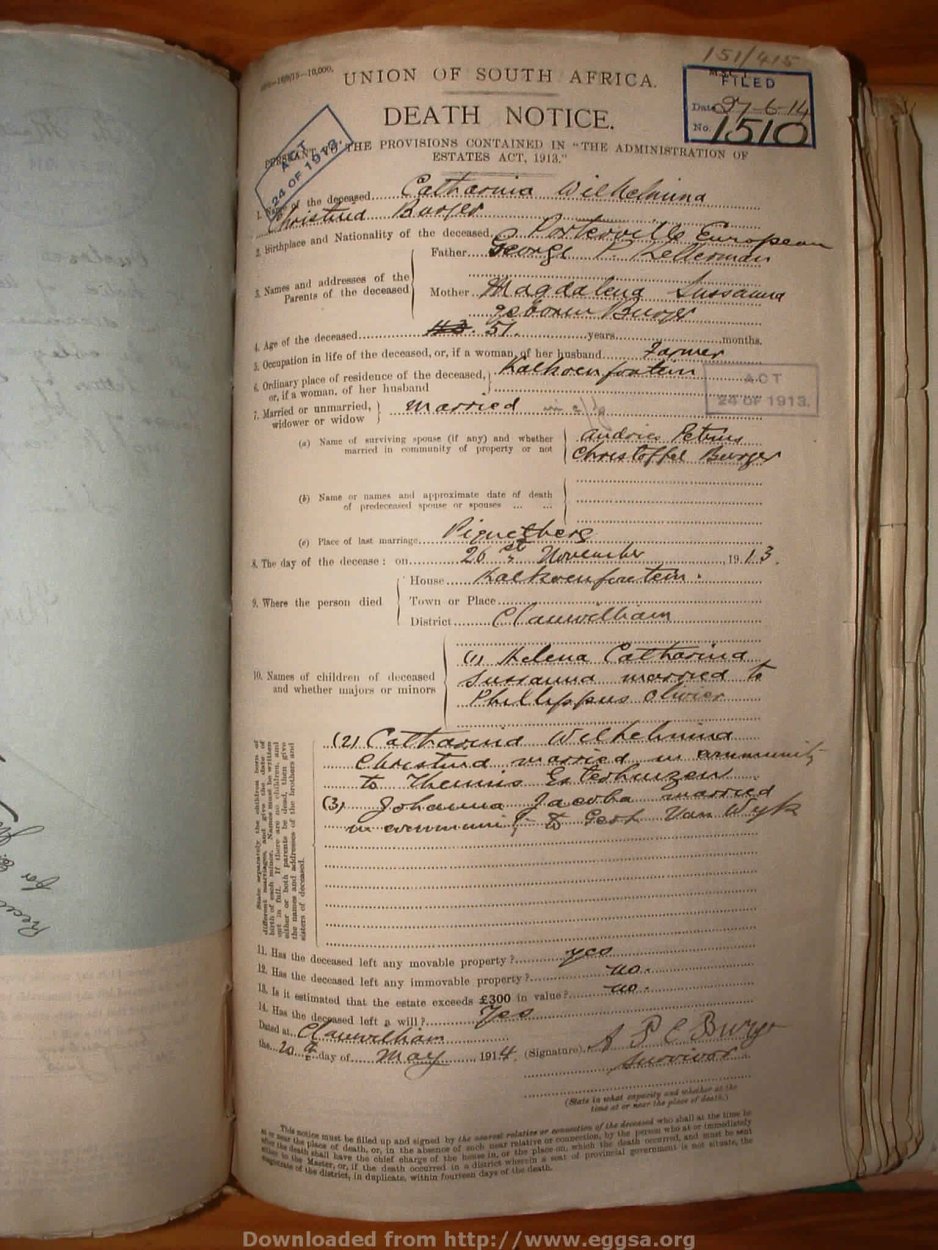 151/415
UNION OF SOUTH AFRICA.
M.S.C. 1
FILED
Date 27-6-14
No. 1510
DEATH NOTICE.
ACT
24 OF 1913.
PURSUANT TO THE PROVISIONS CONTAINED IN "THE ADMINISTRATION OF
ESTATES ACT, 1913."
1. Name of the deceased Catharina Wilhelmina
Christina Burger
2. Birthplace and Nationality of the deceased Porterville European
3. Names and addresses of the Parents of the deceased
Father George P. Kellerman
Mother Magdalena Sussanna
geboren Burger
4. Age of the deceased 51 years months.
5. Occupation in life of the deceased, or, if a woman, of her husband Farmer
6. Ordinary place of residence of the deceased, or, if a woman, of her husband Kalkoenfontein
ACT
24 OF 1913.
7. Married or unmarried, widower or widow married
(a) Name of surviving spouse (if any) and whether married in community of property or not
Andries Petrus
Christoffel Burger
(b) Name or names and approximate date of death of predeceased spouse or spouses
(c) Place of last marriage Piquetberg
8. The day of the decease: on 26st November 1913.
9. Where the person died
House Kalkoenfontein.
Town or Place
District Clanwilliam
10. Names of children of deceased and whether majors or minors
(1) Helena Catharina
Sussanna married to
Phillippus Olivier
State separately the children born of different marriages, and give the date of birth of each minor. Names must be written out in full. If there are no children, and either or both parents be dead, then give the names and addresses of the brothers and sisters of deceased.
(2) Catharina Wilhelmina
Christina married in community
to Theunis Esterhuizen
(3) Johanna Jacoba married
in community to Gert Van Wyk
11. Has the deceased left any movable property? yes
12. Has the deceased left any immovable property? no.
13. Is it estimated that the estate exceeds £300 in value? no.
14. Has the deceased left a will? Yes
Dated at Clanwilliam
the 20 day of May, 1914. (Signature) A P C Burger
Survivor
(State in what capacity and whether at the time at or near the place of death.)
This notice must be filled up and signed by the nearest relative or connection of the deceased who shall at the time be
at or near the place of death, or, in the absence of such near relative or connection, by the person who at or immediately
after the death shall have the chief charge of the house in, or the place on, which the death occurred, and must be sent
either to the Master, or, if the death occurred in a district wherein a seat of provincial government is not situate, the
magistrate of the district, in duplicate, within fourteen days of the death.
Downloaded from http://www.eggsa.org